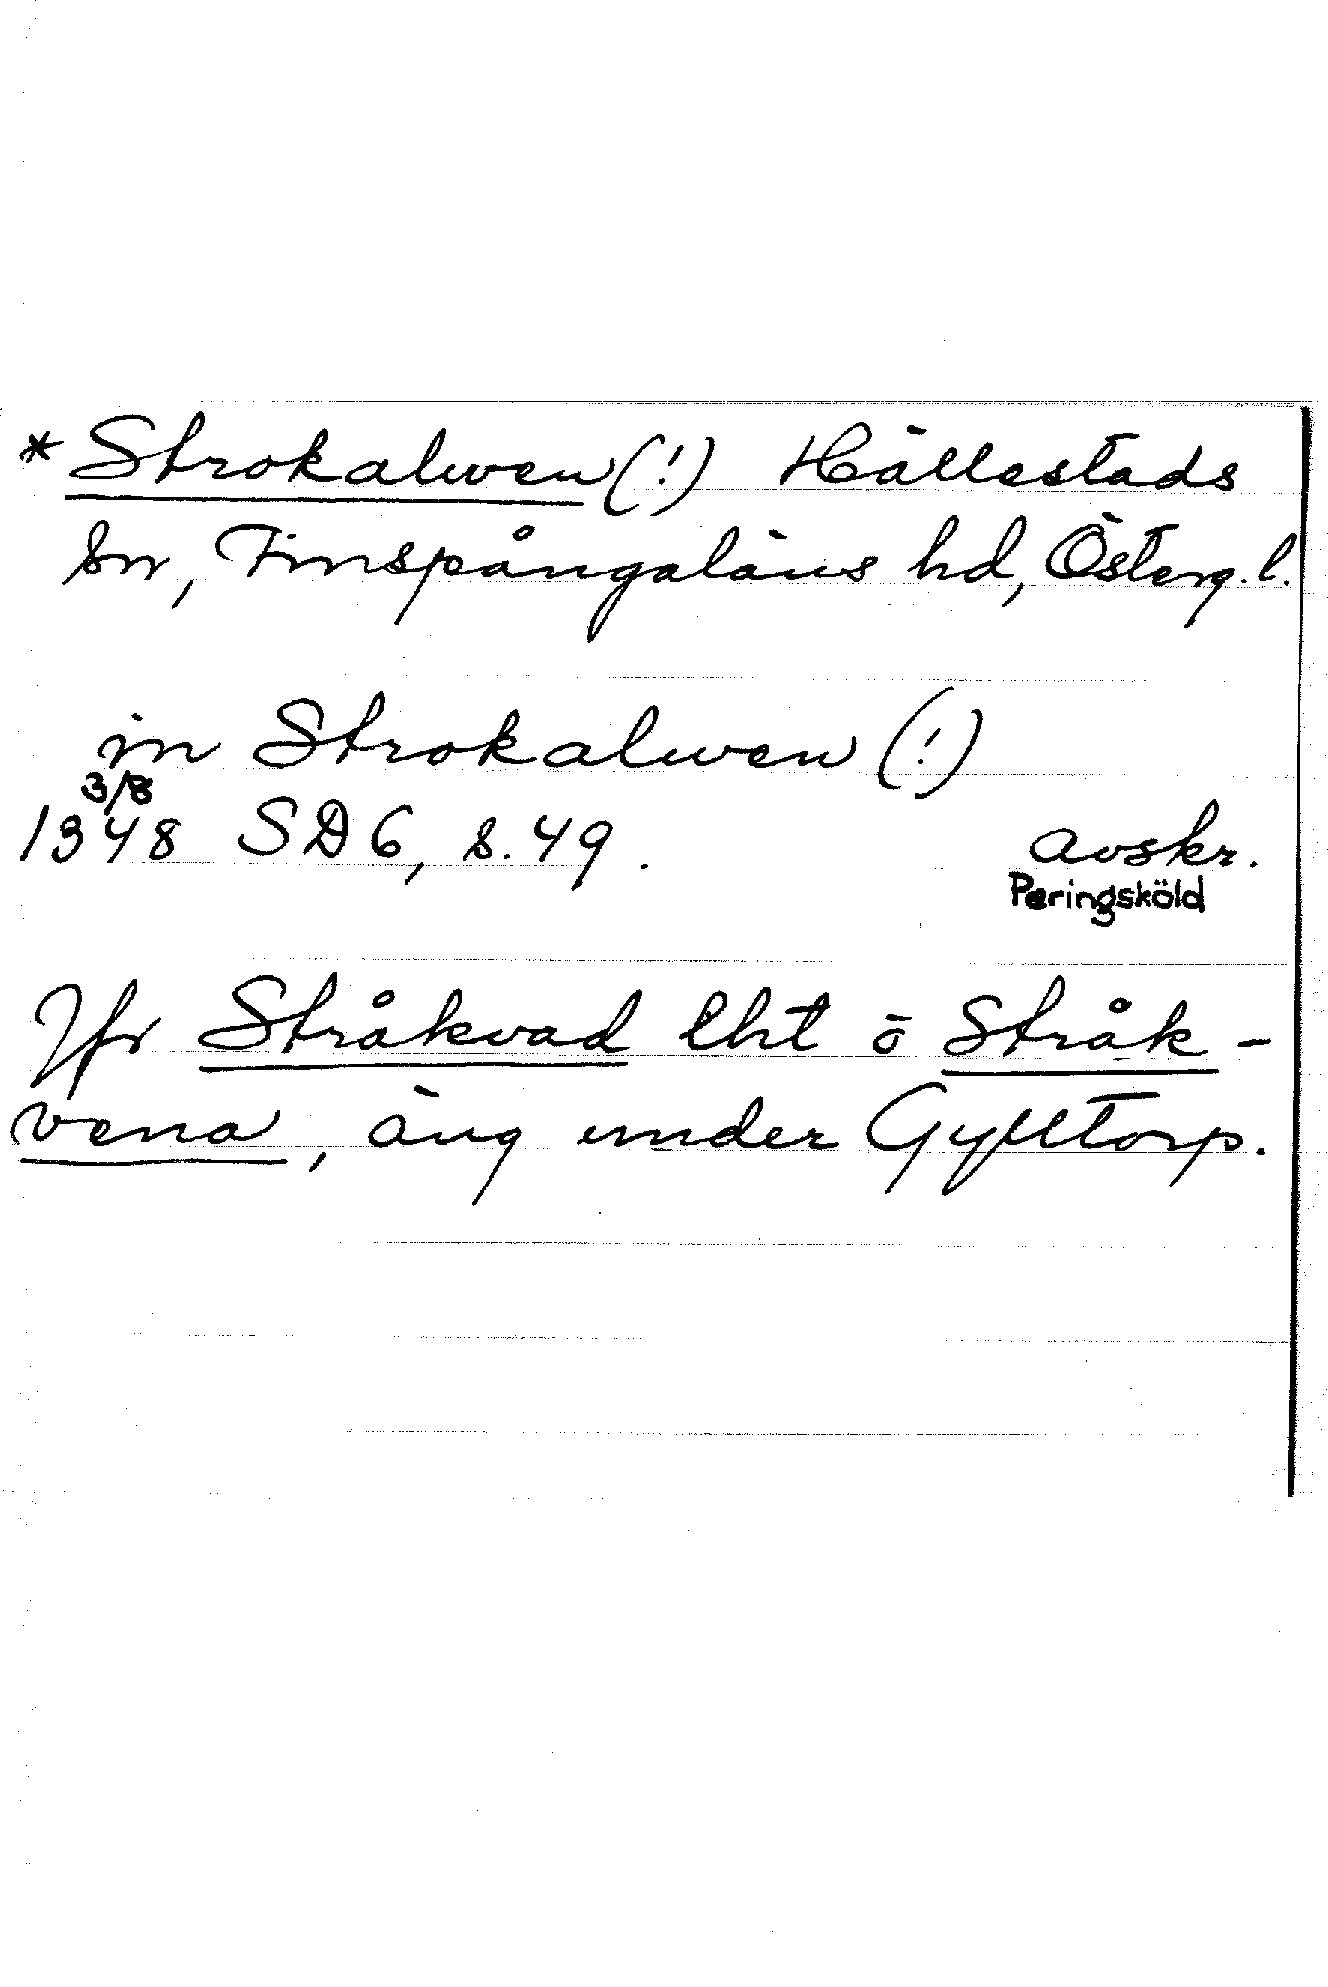 *Strokalwen (!) Hällestads
sn, Finspångaläns hd, Österg. l.
in Strokalwen (!)
3/8
1348 SD 6, s. 49. avskr.
Peringsköld
Jfr Stråkvad lht o Stråk-
vena, äng under Gylltorp.